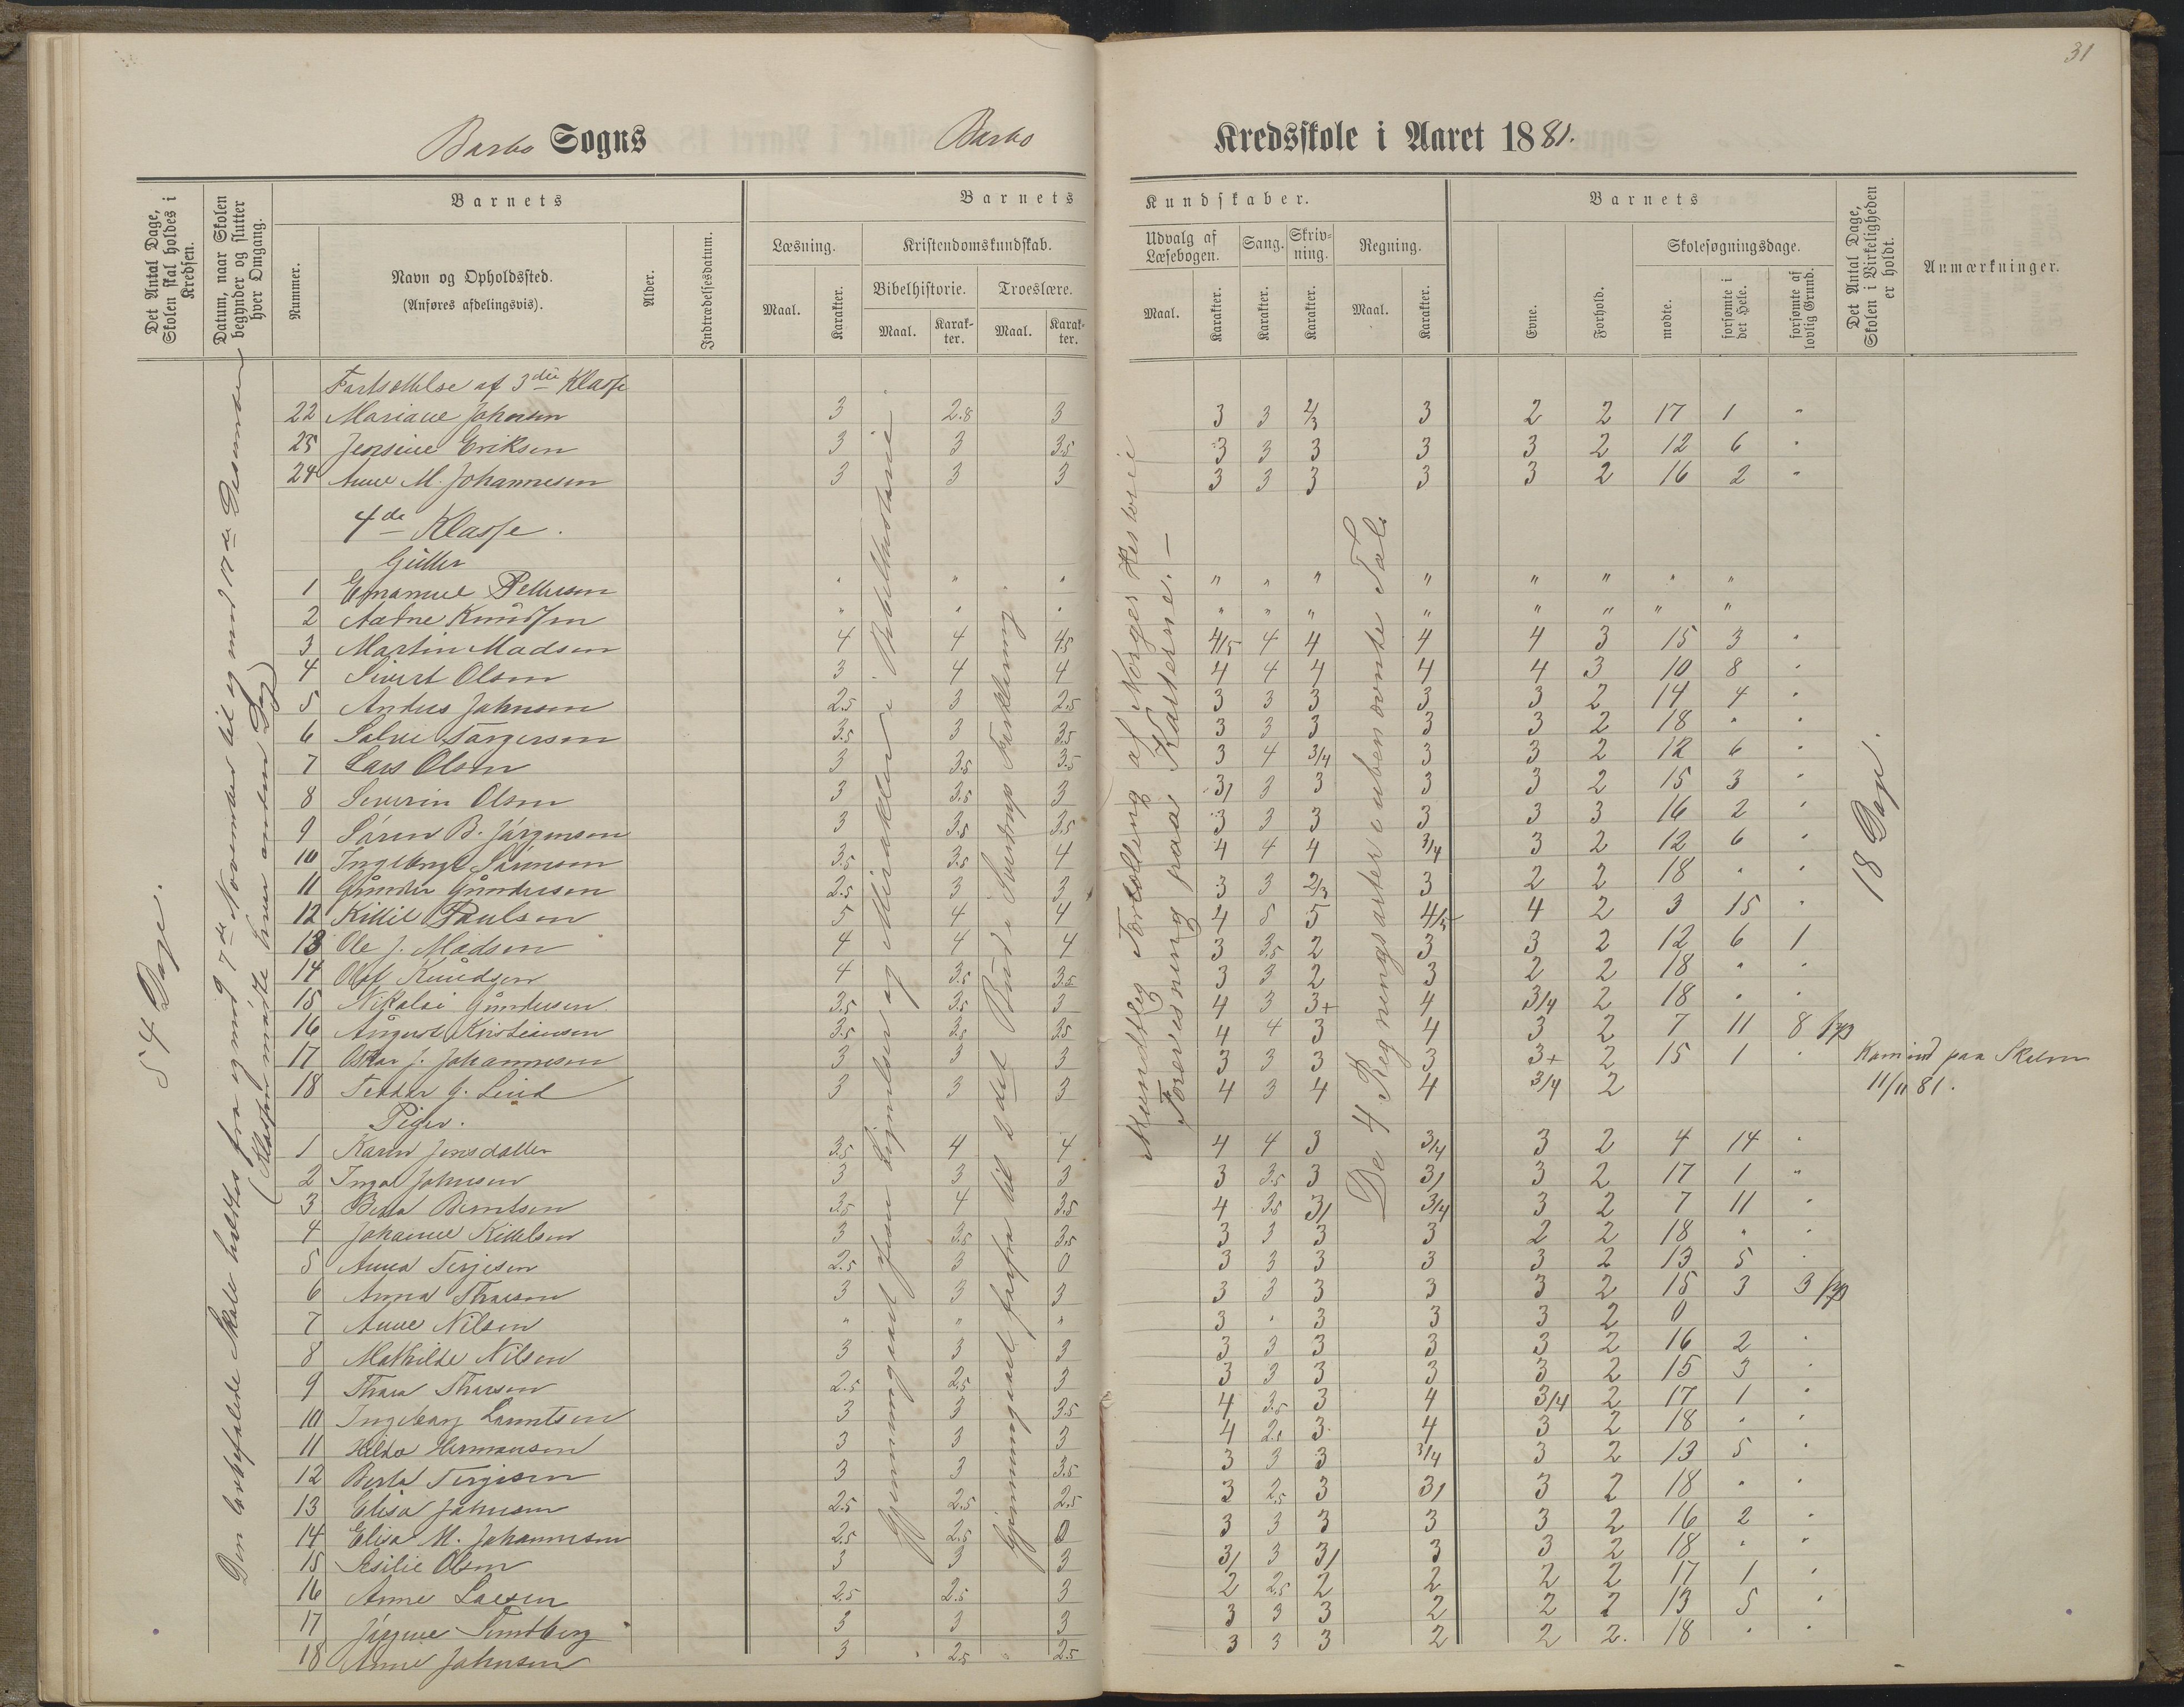 31
Barbo Sogns Barbo Kredsskole i Aaret 1881.
Det Antal Dage, Skolen skal holdes i Kredsen.
Datum, naar Skolen begynder og slutter hver Omgang.
Barnets
Nummer.
Navn og Opholdssted.
(Anføres afdelingsvis).
Alder.
Indtrædelsesdatum.
Barnets Kundskaber.
Læsning.
Maal. Karakter.
Kristendomskundskab.
Bibelhistorie. Troeslære.
Maal. Karakter. Maal. Karakter.
Udvalg af Læsebogen.
Maal. Karakter.
Sang.
Karakter.
Skrivning.
Karakter.
Regning.
Maal. Karakter.
Barnets
Evne. Forhold.
Skolesøgningsdage.
mødte. forsømte i det Hele. forsømte af lovlig Grund.
Det Antal Dage, Skolen i Virkeligheden er holdt.
Anmærkninger.
54 Dage.
Den lovbefalede Skole holdtes fra og med 7de November til og med 17de December
(Klassen mødte hver anden Dag)
Bibelhistorie
Gjennemgaaet forfra til 2det Bud i Sverdrups Forklaring.
Mundtlig Fortælling af Norges Historie
Forevisning paa Kasterne. —
De 4 Regningsarter i ubenævnte Tal.
18 Dage.
Fortsættelse af 3die Klasse
22 Mariane Johnsen 3 2.8 3 3 3 2/3 3 2 2 17 1 "
23 Jensine Eriksen 3 3 3.5 3 3 3 3 3 2 12 6 "
24 Anne M. Johannesen 3 3 3 3 3 3 3 3 2 16 2 "
4de Klasse.
Gutter
1 Emanuel Pettersen " " " " " " " " " " "
2 Aadne Knudsen " " " " " " " " " " "
3 Martin Madsen 4 4 4.5 4/5 4 4 4 4 3 15 3 "
4 Sivert Olsen 3 4 4 4 4 4 4 4 3 10 8 "
5 Anders Johnsen 2.5 3 2.5 3 3 3 3 3 2 14 4 "
6 Salve Torgersen 3.5 3 3.5 3 3 3 3 3 2 18 " "
7 Lars Olsen 3 3.5 3.5 3 4 3/4 3 3 2 12 6 "
8 Severin Olsen 3 3.5 3 3/ 3 3 3 3 2 15 3 "
9 Søren B. Jørgensen 3 3.5 3.5 3 3 3 3 3 3 16 2 "
10 Ingebregt Sørensen 3.5 3.5 4 4 4 4 3/4 3 2 12 6 "
11 Gunder Gundersen 2.5 3 3 3 3 2/3 3 2 2 18 " "
12 Kittil Paulsen 5 4 4 4 5 5 4/5 4 2 3 15 "
13 Ole J. Madsen 4 4 4 3 3.5 2 3 3 2 12 6 1
14 Olaf Knudsen 4 3.5 3.5 3 3 2 3 2 2 18 " "
15 Nikolai Gundersen 3.5 3.5 3 4 3 3+ 4 3/4 2 18 " "
16 August Kristiansen 3.5 3.5 3.5 4 4 3 4 3 2 7 11 8
17 Oskar J. Johannesen 3 3 3 3 3 3 3 3+ 2 15 1 " Kom ind paa Skolen
18 Teodor G. Lind 3 3 3 4 3 4 4 3/4 2 11/11 81.
Piger.
1 Karen Jensdatter 3.5 4 4 4 4 3 3/4 3 2 4 14 "
2 Inga Johnsen 3 3 3 3 3.5 3 3/ 3 2 17 1 "
3 Berta Berntsen 3.5 4 3.5 4 3.5 3/ 3/4 3 2 7 11 "
4 Johanne Kittelsen 3 3.5 3.5 3 3 3 3 2 2 18 " "
5 Anna Terjesen 2.5 3 0 3 3 3 3 3 2 13 5 "
6 Anna Thorsen 3 3 3 3 3 3 3 3 2 15 3 3
7 Anne Nilsen " " " 3 " 3 3 3 2 0
8 Mathilde Nilsen 3 3 3 3 3 3 3 3 2 16 2 "
9 Thora Thorsen 2.5 2.5 3 3 3 3 3 3 2 15 3 "
10 Ingeborg Lauritsen 3 3 3.5 4 3.5 3 4 3/4 2 17 1 "
11 Hilda Hermansen 3 3 3 4 2.5 3 4 3 2 18 " "
12 Berta Terjesen 3 3 3.5 3 3 3 3/4 3 2 13 5 "
13 Elisa Johnsen 2.5 2.5 2.5 3 2.5 3 3/ 3 2 18 " "
14 Elisa M. Johannesen 2.5 2.5 0 3 3 3 3 3 2 16 2 "
15 Sesilie Olsen 3 3 3 3/ 3 3/ 3 3 2 18 " "
16 Anne Larsen 2.5 2.5 3 2 2.5 2 2 2 2 17 1 "
17 Jørgine Sundberg 3 3 3 3 3 3 2 2 2 13 5 "
18 Anne Johnsen 3 2.5 2.5 3 3 3 2 2 2. 18 " "